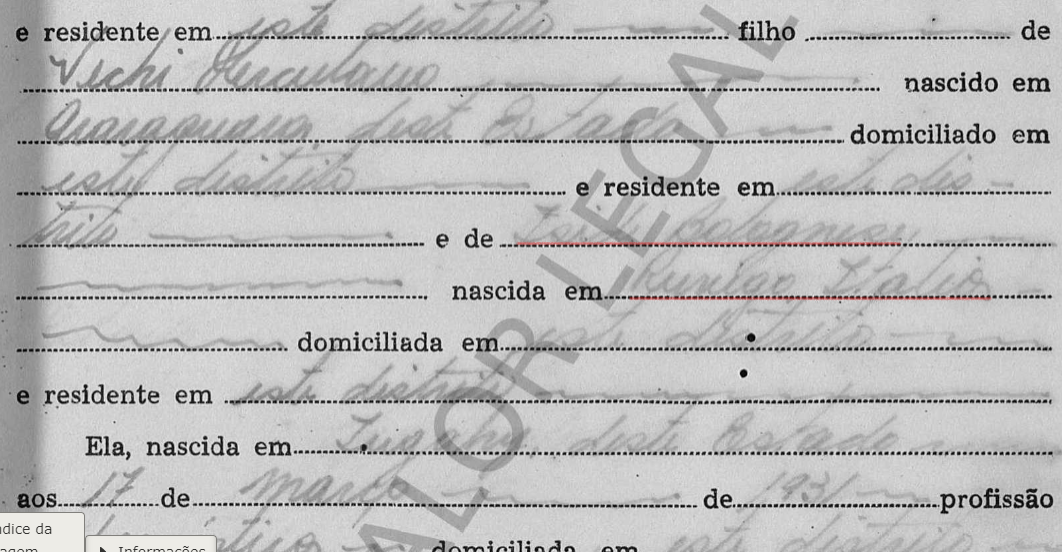 e residente em este distrito filho de
Vechi Herculano nascido em
deste Estado domiciliado em
este distrito e residente em este dis-
trito e de Bolognesi
nascida em Italia
domiciliada em este distrito
e residente em este distrito
Ela, nascida em deste Estado
aos 17 de março de 1931 profissão
domiciliada em este distrito
VALOR LEGAL
ndice da
agem
Informações